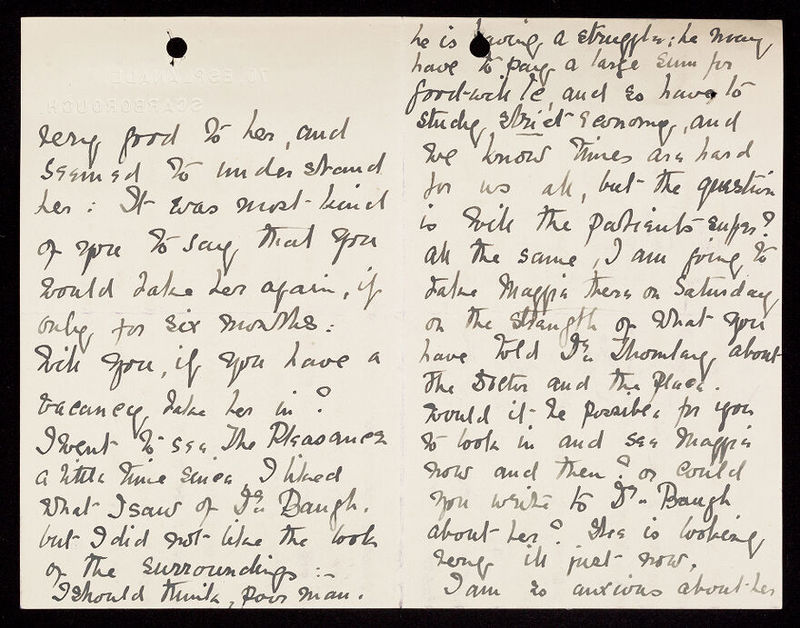 70, ESPLANADE
SCARBOROUGH.
very good to her, and
seemed to understand
her: It was most kind
of you to say that you
would take her again, if
only for six months:
Will you, if you have a
vacancy, take her in?
I went to see The Pleasance
a little time since, I liked
what I saw of Dr. Baugh.
but I did not like the look
of the surroundings:-
I should think, poor man.
he is having a struggle; he may
have to pay a large sum for
good-will &c, and so have to
study strict economy, and
we know times are hard
for us all, but the question
is will the patients suffer?
all the same, I am going to
take Maggie there on Saturday
on the strength of what you
have told Dr. Thornley about
the Doctor and the place.
Would it be possible for you
to look in and see Maggie
now and then? or could
you write to Dr. Baugh
about her? She is looking
very ill just now.
I am so anxious about her